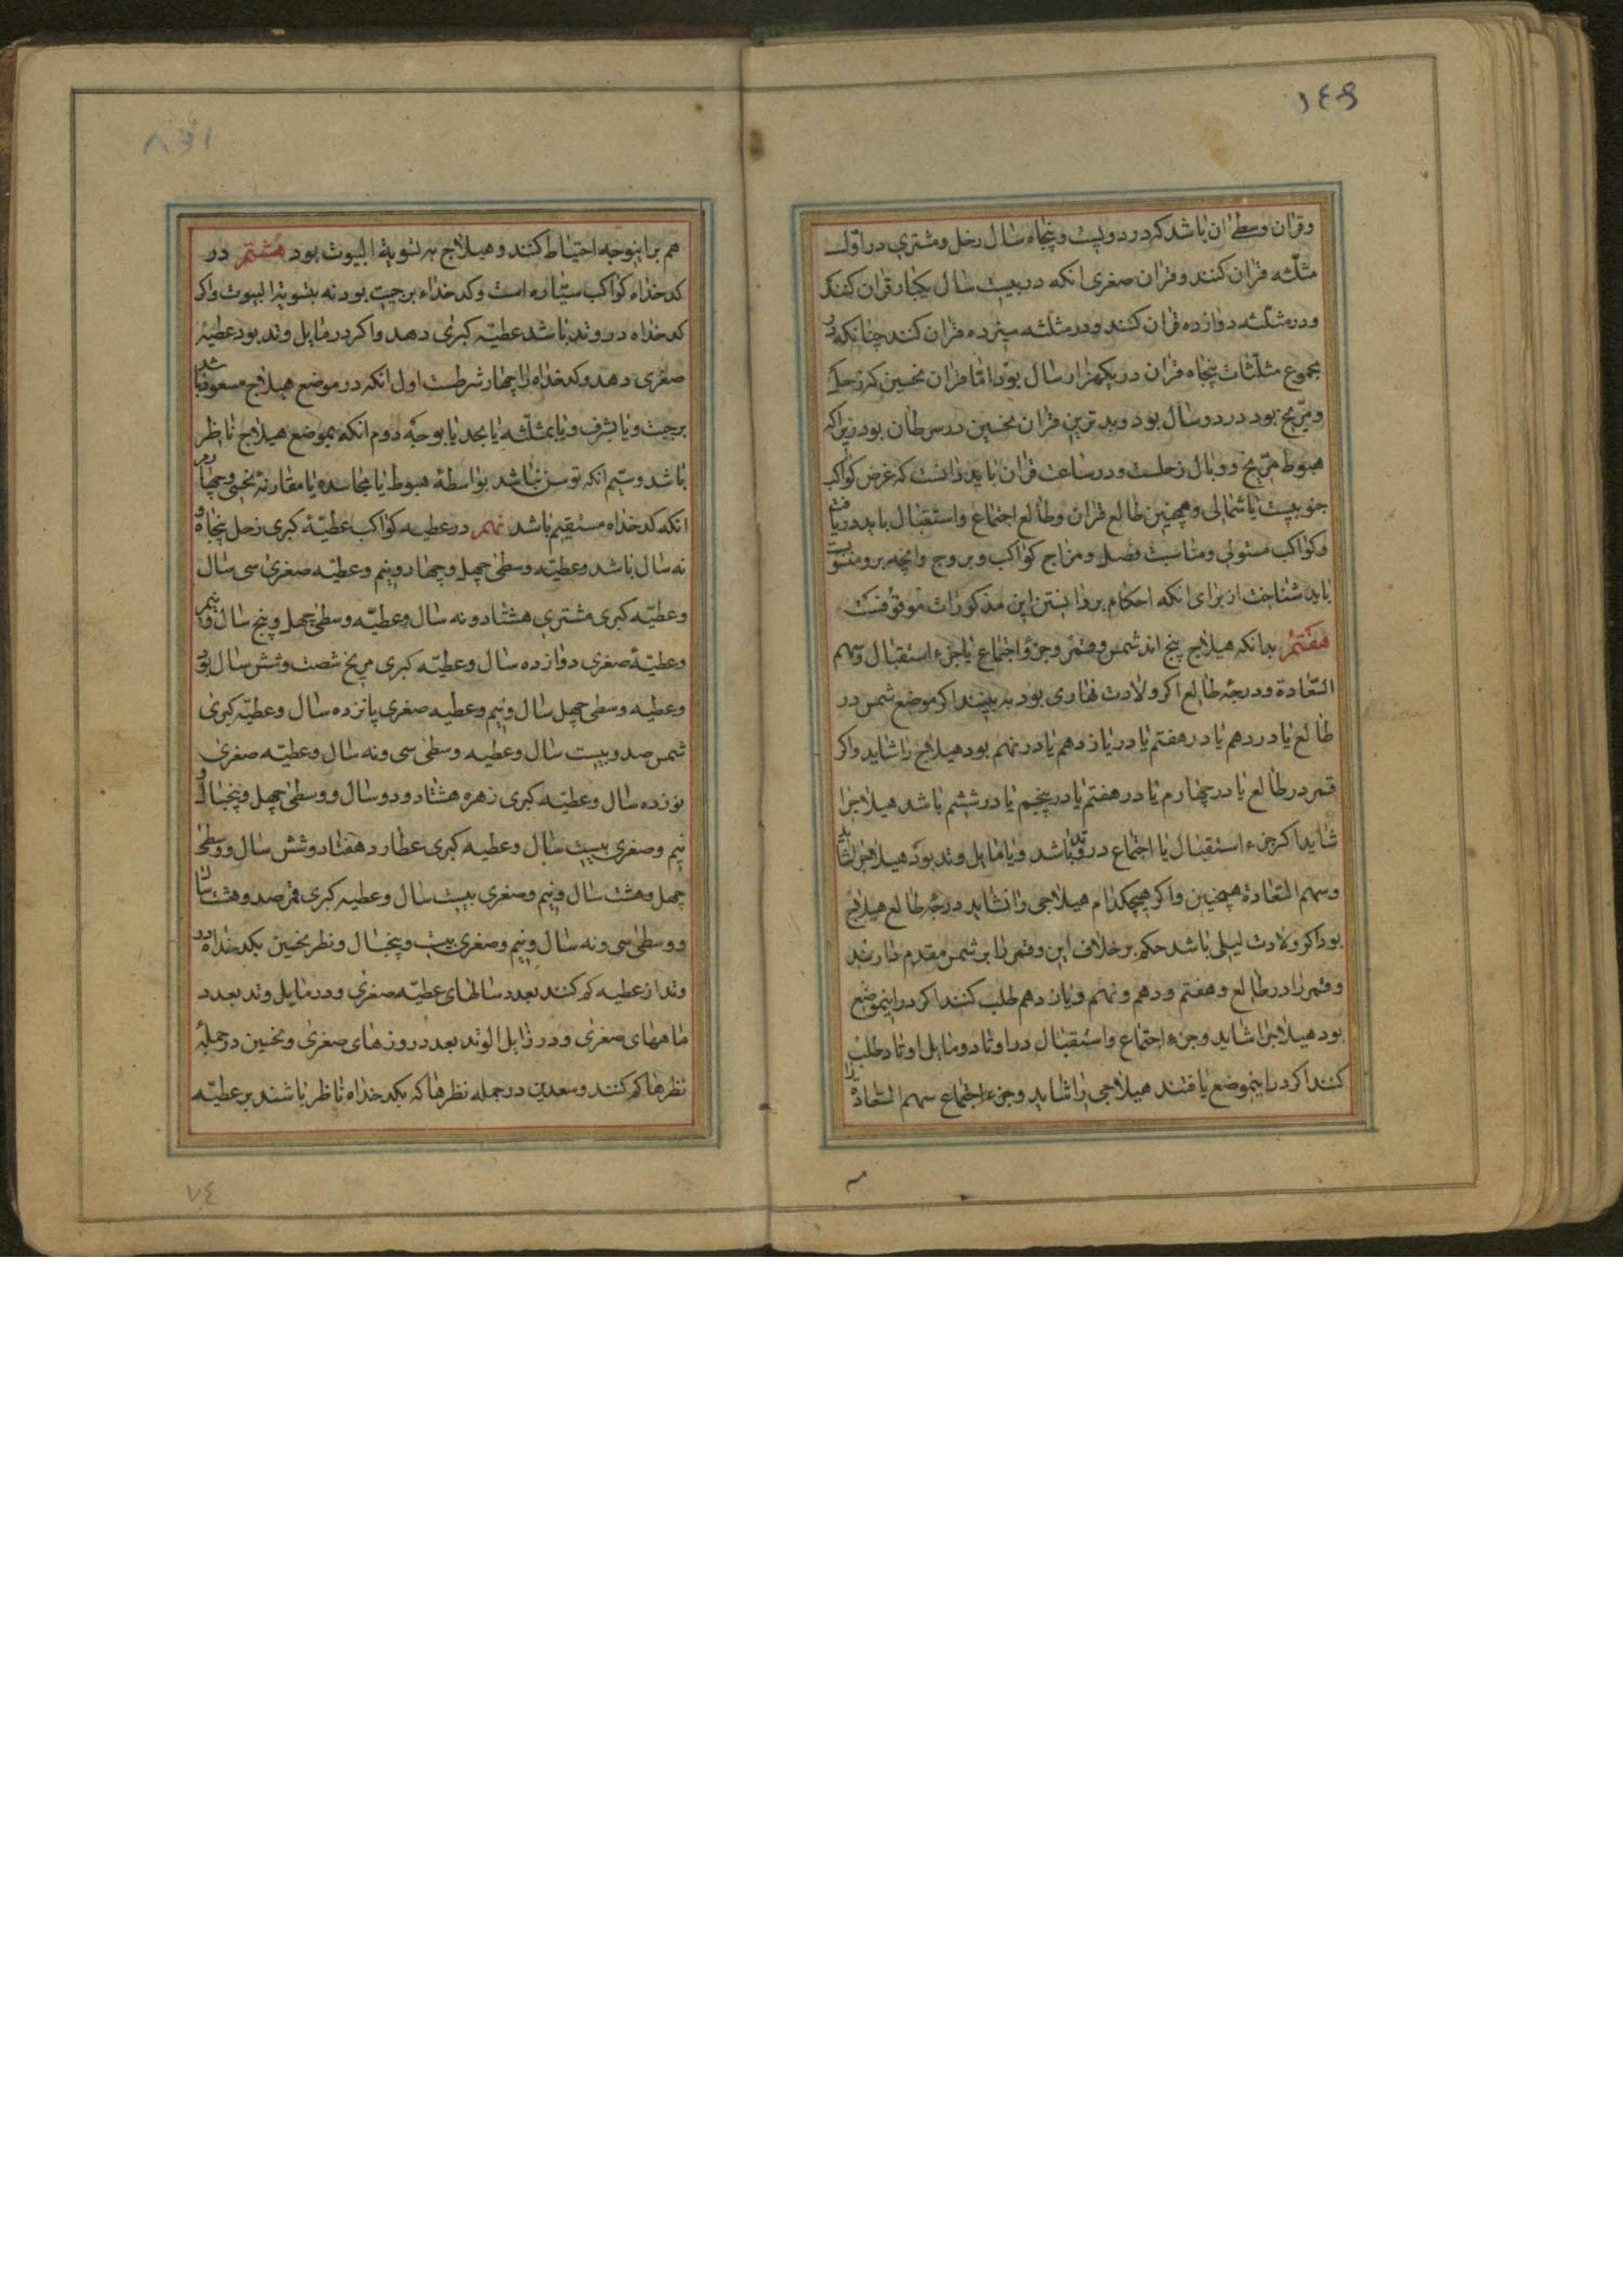 ١٤٩
وقران وسطی ان باشد که در دویست و پنجاه سال زحل ومشتری در اول
مثلّثه قران کنند وقران صغری انکه در بیست سال یکبار قران کنند
ودر مثلّثه دوازده قران کنند ودر مثلثه سیزده قران کنند چنانکه در
مجموع مثلّثات پنجاه قران در یکهزار سال بود اما قران نحسین که زحل
ومرّیخ بود در دو سال بود وبدترین قران نحسین در سرطان بود زیراکه
هبوط مرّیخ ووبال زحلست ودر ساعت قران باید دانست که عرض کواکب
جنوبیست یا شمالی وهمچنین طالع قران وطالع اجتماع واستقبال باید دریافت
وکواکب مستولی ومناسبت فصل ومزاج کواکب وبروج وانچه برو منسوبست
باید شناخت از برای انکه احکام بر دانستن این مذکورات موقوفست
هفتم بدانکه هیلاج پنج اند شمس وقمر وجزؤ اجتماع یا جزء استقبال وسهم
السّعادة ودرجه طالع اکر ولادت نهاری بود به بینند اکر موضع شمس در
طالع یا در دهم یا در هفتم یا در یازدهم یا در نهم بود هیلاج را شاید واکر
قمر در طالع یا در چهارم یا در هفتم یا در پنجم یا در ششم باشد هیلاجرا
شاید اکر جزء استقبال یا اجتماع در وتد باشد ویا مایل وتد بود هیلاجرا شاید
وسهم السّعادة همچنین واکر هیچکدام هیلاجی را نشاید درجه طالع هیلاج
بود اکر ولادت لیلی باشد حکم بر خلاف این وقمر را بر شمس مقدم دارند
وقمر را در طالع وهفتم ودهم ونهم ویازدهم طلب کنند اکر در اینموضع
بود هیلاجرا شاید وجزء اجتماع واستقبال در اوتاد ومایل اوتاد طلب
کنند اکر در اینموضع یافتند هیلاجی را شاید وجزء اجتماع سهم السّعادة را
هم براینوجه احتیاط کنند وهیلاج به تسویة البیوت بود هشتم در
کدخداء کواکب سیّاره است وکدخداء برجیت بود نه بتسویة البیوت واکر
کدخداه در وتد باشد عطیّه کبری دهد واکر در مایل وتد بود عطیّه
صغری دهد وکدخداه را چهار شرطست اول انکه در موضع هیلاج مسعود باشد
ببیت ویا بشرف ویا بمثلّثه یا بحد یا بوجه دوم انکه بموضع هیلاج ناظر
باشد وسیم انکه نباشد بواسطهٔ هبوط یا یا مقارنه نحسی وچهارم
انکه کدخداه مستقیم باشد نهم در عطیه کواکب عطیّهٔ کبری زحل پنجاه و
نه سال باشد وعطیّه وسطی چهل وچهار ونیم وعطیّه صغری سی سال
وعطیّه کبری مشتری هشتاد ونه سال وعطیّه وسطی چهل وپنج سال ونیم
وعطیّهٔ صغری دوازده سال وعطیّه کبری مریخ شصت وشش سال بود
وعطیه وسطی چهل سال ونیم وعطیه صغری پانزده سال وعطیّه کبری
شمس صد وبیست سال وعطیه وسطی سی ونه سال وعطیّه صغری
نوزده سال وعطیّه کبری زهره هشتاد ودو سال ووسطی چهل وپنجسال و
نیم وصغری بیست سال وعطیه کبری عطارد هفتاد وشش سال ووسطی
چهل وهشت سال ونیم وصغری بیست سال وعطیه کبری قمر صد وهشت سال
ووسطی سی ونه سال ونیم وصغری بیست وپنجسال ونظر نحسین بکدخداه در
وتد از عطیه کم کنند بعدد سالهای عطیّه صغری ودر مایل وتد بعدد
ماههای صغری ودر زایل الوتد بعدد روزهای صغری ونحسین در جملهٔ
نظرها کم کنند وسعدین در جمله نظرها که بکدخداه ناظر باشند بر عطیّه
٧٤